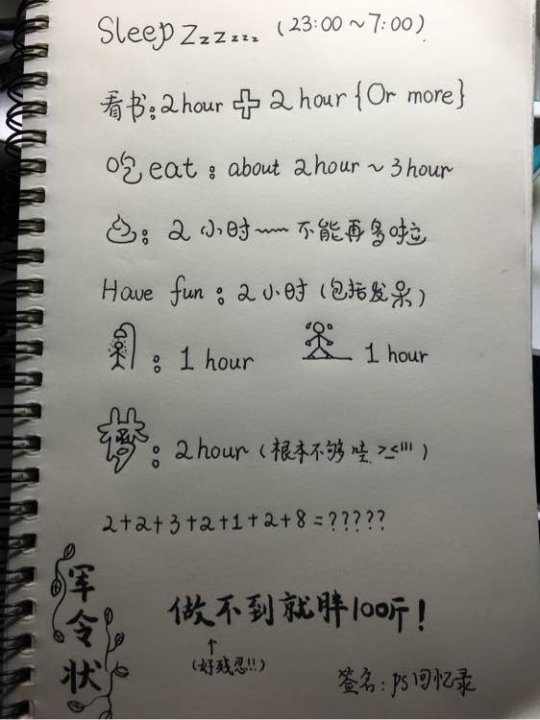 Sleep Zzzzzz (23:00~7:00)
看书:2hour + 2 hour {Or more}
吃 eat : about 2hour ~ 3hour
: 2 小时~~ 不能再多啦
Have fun : 2 小时 (包括发呆)
: 1 hour 1 hour
: 2hour (根本不够哇 >_<''')
2+2+3+2+1+2+8=?????
军令状
做不到就胖100斤!
↑
(好残忍!!)
签名:ps回忆录